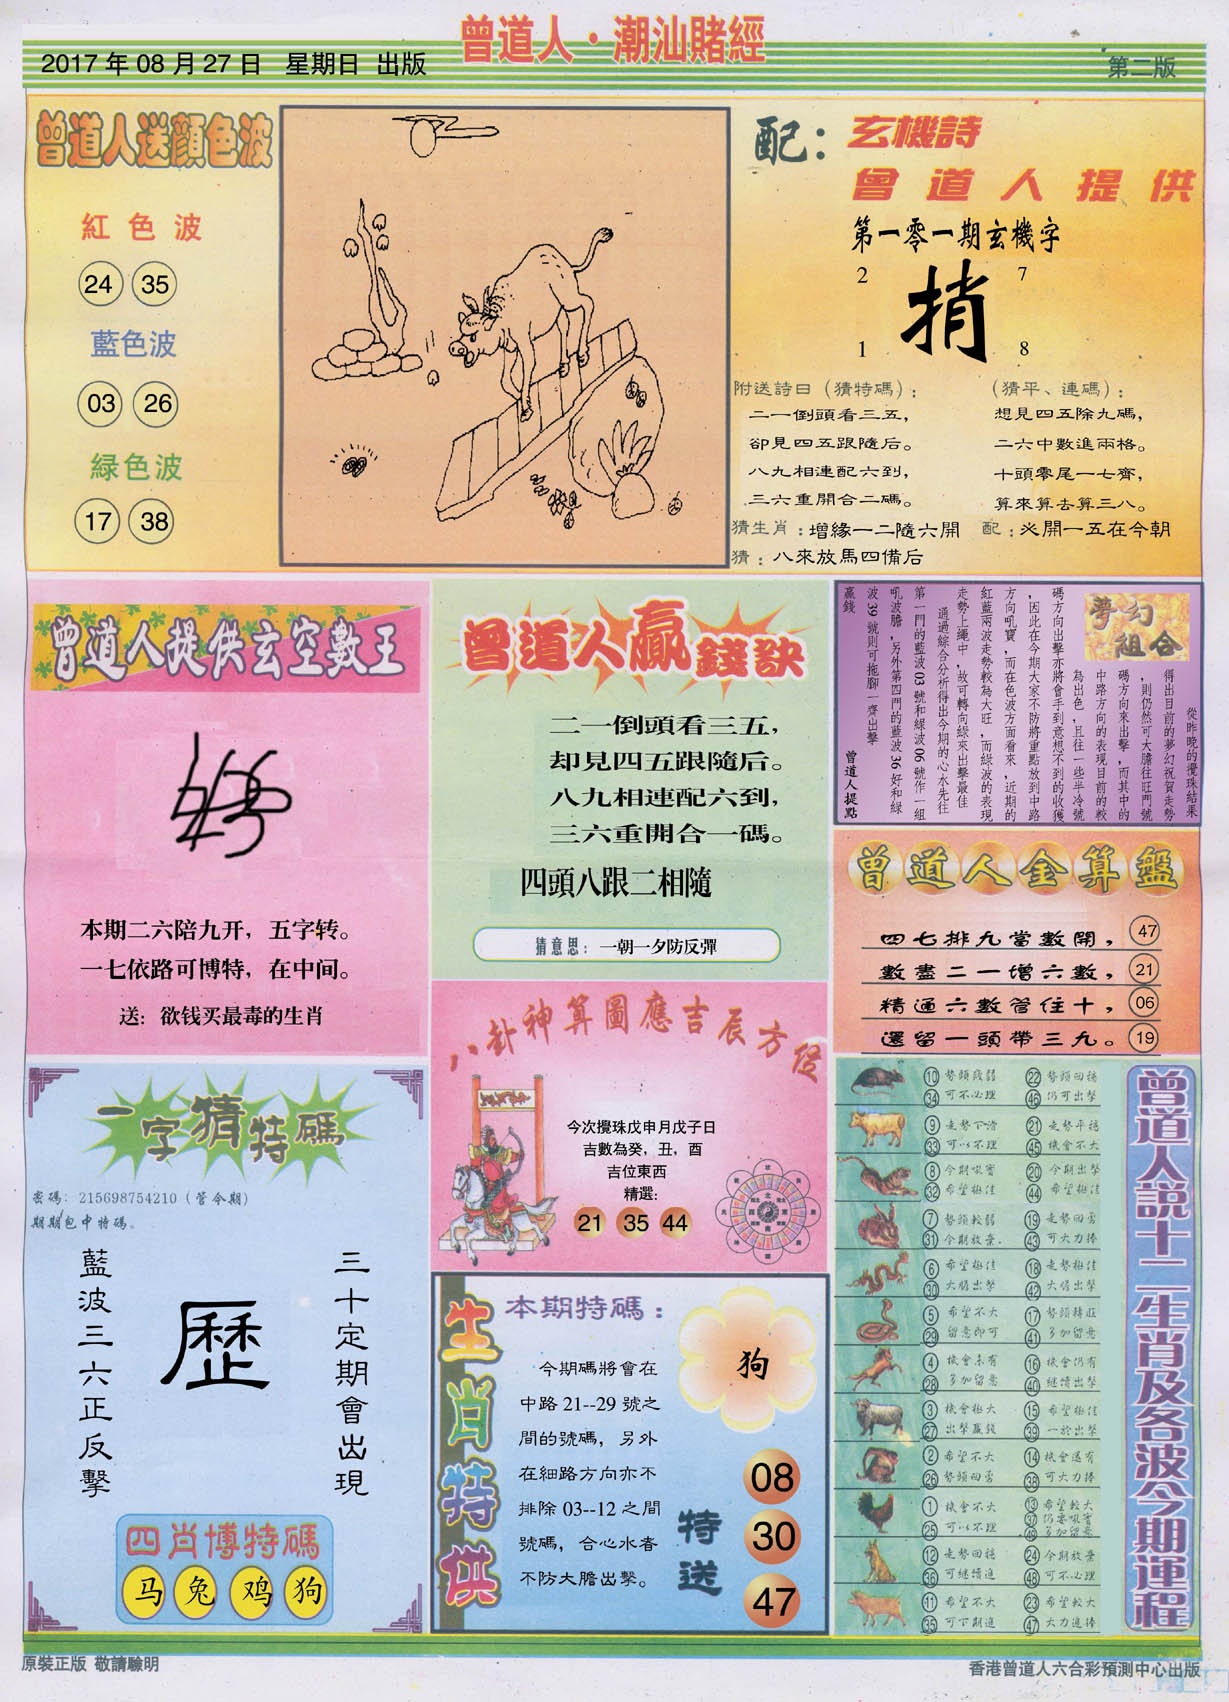 曾道人·潮汕賭經
2017年08月27日 星期日 出版
第二版
曾道人送顔色波
紅色波
24 35
藍色波
03 26
緑色波
17 38
配：玄機詩
曾道人提供
第一零一期玄機字
2 7
捎
1 8
附送詩曰（猜特碼）：
二一倒頭看三五，
卻見四五跟隨后。
八九相連配六到，
三六重開合二碼。
（猜平、連碼）：
想見四五除九碼，
二六中數進兩格。
十頭零尾一七齊，
算來算去算三八。
猜生肖：增緣一二隨六開 配：必開一五在今朝
猜：八來放馬四備后
曾道人提供玄空數王
本期二六陪九开，五字转。
一七依路可博特，在中间。
送：欲钱买最毒的生肖
曾道人贏錢訣
二一倒頭看三五，
却見四五跟隨后。
八九相連配六到，
三六重開合一碼。
四頭八跟二相隨
猜意思：一朝一夕防反彈
夢幻
組合
從昨晚的攪珠結果
得出目前的夢幻祝賀走勢
，則仍然可大膽往旺門號
碼方向來出擊，而其中的
中路方向的表現目前的較
為出色，且往一些半冷號
碼方向出擊亦將會手到意想不到的收獲
，因此在今期大家不防將重點放到中路
方向吼寶，而在色波方面看來，近期的
紅藍兩波走勢較為大旺，而綠波的表現
走勢上繩中，故可轉向綠來出擊最佳
通過綜合分析得出今期的心水先往
第一門的藍波03號和綠波06號作一組
吼波膽，另外第四門的藍波36好和綠
波39號則可拖腳一齊出擊
贏錢
曾道人提點
曾道人金算盤
四七排九當數開， 47
數盡二一增六數， 21
精通六數管住十， 06
還留一頭帶三九。 19
八卦神算圖應吉辰方位
今次攪珠戊申月戊子日
吉數為癸，丑，酉
吉位東西
精選：
21 35 44
一字猜特碼
密碼：215698754210（管今期）
期期包中特碼。
三十定期會出現
歷
藍波三六正反擊
四肖博特碼
马 兔 鸡 狗
生肖特供
本期特碼：
狗
今期碼將會在
中路21--29號之
間的號碼，另外
在細路方向亦不
排除03--12之間
號碼，合心水者
不防大膽出擊。
特送
08
30
47
曾道人説十二生肖及各波今期運程
10 勢頭疲弱 22 勢頭回穩
34 可不必理 46 仍可出擊
9 走勢下滑 21 走勢平穩
33 可以不理 45 機會不大
8 今期吼寶 20 今期出擊
32 希望極佳 44 希望極佳
7 勢頭較弱 19 走勢回勇
31 今期放棄. 43 可大力捧
6 希望極佳 18 走勢極佳
30 大膽出擊 42 大膽出擊
5 希望不大 17 勢頭轉旺
29 留意即可 41 多加留意
4 機會未有 16 機會仍有
28 多加留意 40 繼續出擊
3 機會極大 15 希望極佳
27 出擊贏錢 39 一於出擊
2 希望不大 14 機會還有
26 勢頭回勇 38 可大力捧
1 機會不大 13 希望較大
25 可以不理 37 仍要吼寶
49 多加留意
12 走勢回穩 24 今期放棄
36 可繼續進 48 可不必理
11 希望不大 23 希望較大
35 可下期進 47 大力進捧
原裝正版 敬請驗明
香港曾道人六合彩預測中心出版